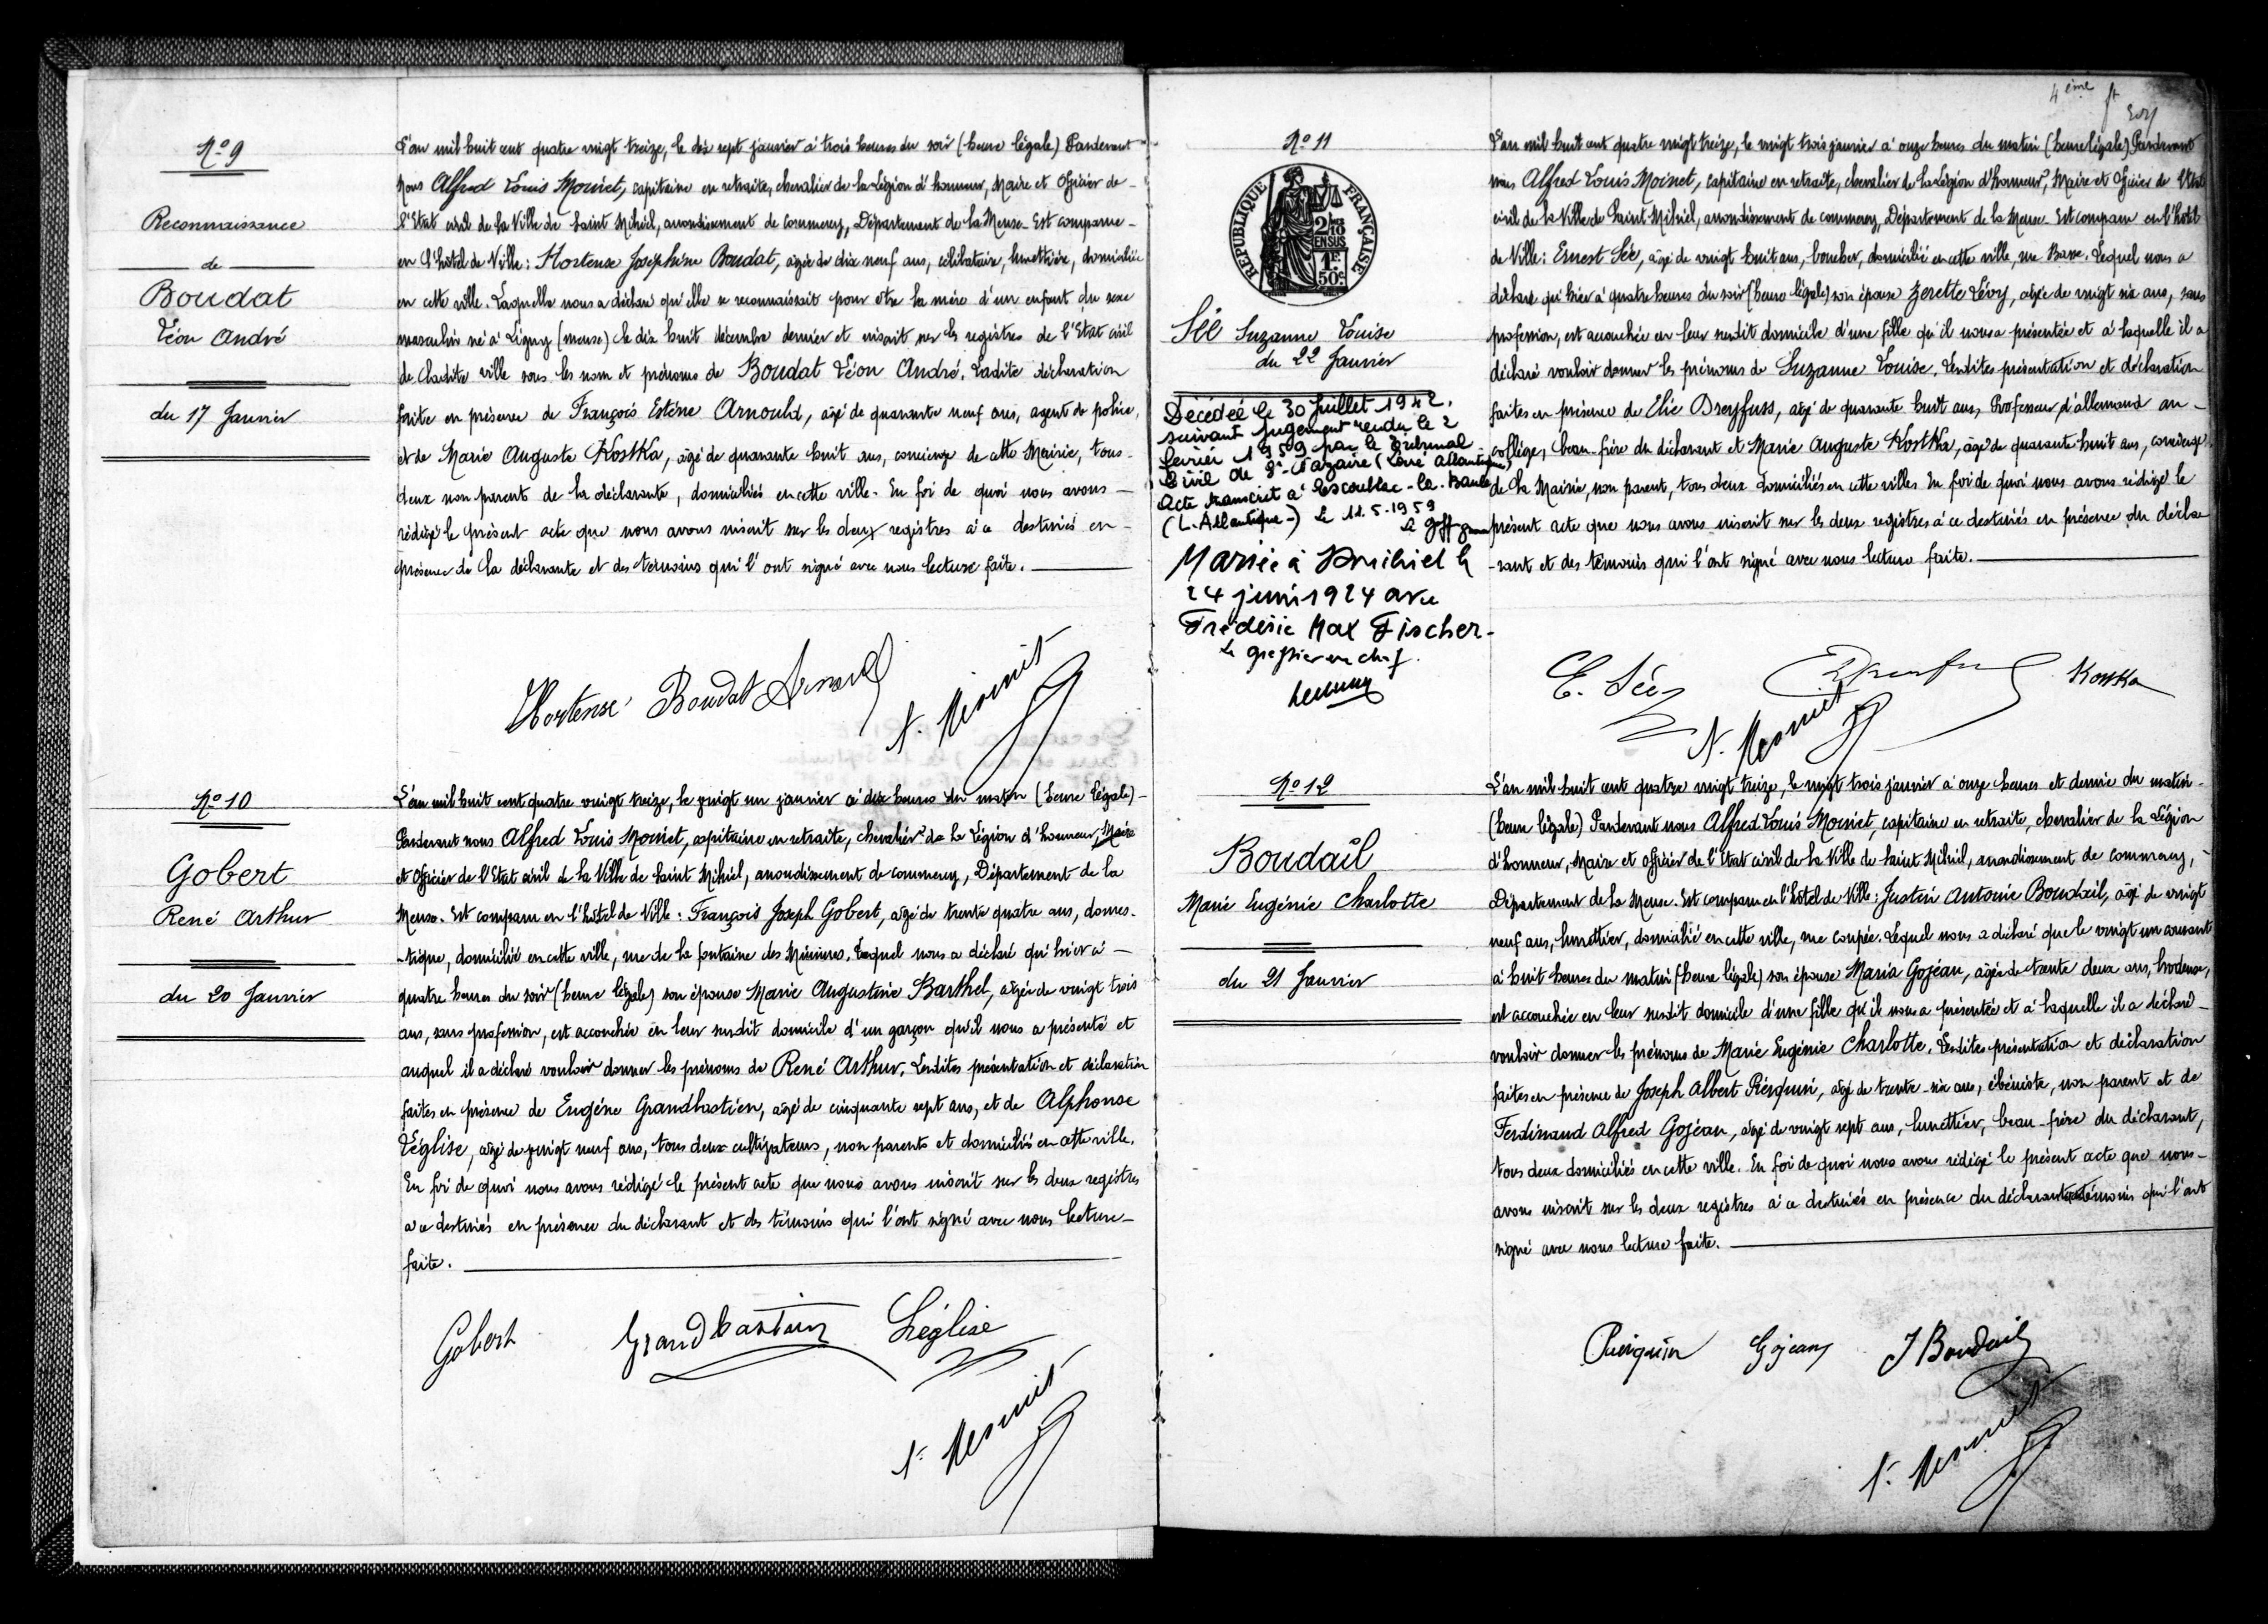 Nº 9
Reconnaissance
de
Boudat
Léon André
du 17 Janvier
L'an mil huit cent quatre vingt treize, le dix sept janvier à trois heures du soir (heure légale) Pardevant
Nous Alfred Louis Moinet, capitaine en retraite, chevalier de la Légion d'honneur, Maire et Officier de
l'Etat civil de la Ville de Saint Mihiel, arrondissement de Commercy, Département de la Meuse. Est comparue
en l'hôtel de Ville: Hortense Joséphine Boudat, agée de dix neuf ans, célibataire, lunettière, domiciliée
en cette ville. Laquelle nous a déclaré qu'elle se reconnaissait pour être la mère d'un enfant du sexe
masculin né à Ligny (Meuse) le dix huit décembre dernier et inscrit sur les registres de l'Etat civil
de ladite ville sous les nom et prénoms de Boudat Léon André. Ladite déclaration
faite en présence de François Estène Arnould, agé de quarante neuf ans, agent de police,
et de Marie Auguste Kostka, agé de quarante huit ans, concierge de cette Mairie, tous
deux non parents de la déclarante, domiciliés en cette ville. En foi de quoi nous avons
rédigé le présent acte que nous avons inscrit sur les deux registres à ce destinés en
présence de la déclarante et des témoins qui l'ont signé avec nous lecture faite.
Hortense Boudat Arnould
Nº 10
Gobert
René Arthur
du 20 Janvier
L'an mil huit cent quatre vingt treize, le vingt un janvier à dix heures du matin (heure légale)
Pardevant nous Alfred Louis Moinet, capitaine en retraite, chevalier de la Légion d'honneur, Maire
et Officier de l'Etat civil de la Ville de Saint Mihiel, arrondissement de Commercy, Département de la
Meuse. Est comparu en l'hôtel de Ville: François Joseph Gobert, agé de trente quatre ans, domes-
-tique, domicilié en cette ville, rue de la fontaine des Minimes. Lequel nous a déclaré qu'hier à
quatre heures du soir (heure légale) son épouse Marie Augustine Barthel, agée de vingt trois
ans, sans profession, est accouchée en leur susdit domicile d'un garçon qu'il nous a présenté et
auquel il a déclaré vouloir donner les prénoms de René Arthur. Lesdites présentation et déclaration
faites en présence de Eugène Grandbastien, agé de cinquante sept ans, et de Alphonse
Léglise, agé de vingt neuf ans, tous deux cultivateurs, non parents et domiciliés en cette ville.
En foi de quoi nous avons rédigé le présent acte que nous avons inscrit sur les deux registres
à ce destinés en présence du déclarant et des témoins qui l'ont signé avec nous lecture
faite.
Gobert Grandbastien Léglise
4ème ft
Nº 11
RÉPUBLIQUE FRANÇAISE
2/10 EN SUS
1F 50c
Sée Suzanne Louise
du 22 Janvier
Décédée le 30 Juillet 1942.
suivant jugement rendu le 2
février 1959 par le Tribunal
Civil de St-Nazaire (Loire Atlantique)
Acte transcrit à Escoublac-la-Baule
(L-Atlantique-) Le 11.5.1959
Mariée à St Mihiel le
24 juin 1924 avec
Frédéric Max Fischer-
Le greffier en chef.
L'an mil huit cent quatre vingt treize, le vingt trois janvier à onze heures du matin (heure légale) Pardevant
nous Alfred Louis Moinet, capitaine en retraite, chevalier de la Légion d'honneur, Maire et Officier de l'Etat
civil de la Ville de Saint Mihiel, arrondissement de Commercy, Département de la Meuse. Est comparu en l'hôtel
de Ville: Ernest Sée, agé de vingt huit ans, boucher, domicilié en cette ville, rue Basse. Lequel nous a
déclaré qu'hier à quatre heures du soir (heure légale) son épouse Zerette Lévy, agée de vingt six ans, sans
profession, est accouchée en leur susdit domicile d'une fille qu'il nous a présentée et à laquelle il a
déclaré vouloir donner les prénoms de Suzanne Louise. Lesdites présentation et déclaration
faites en présence de Elie Dreyfuss, agé de quarante huit ans, Professeur d'allemand au
collège, beau-frère du déclarant et Marie Auguste Kostka, agé de quarante huit ans, concierge
de la Mairie, non parent, tous deux domiciliés en cette ville. En foi de quoi nous avons rédigé le
présent acte que nous avons inscrit sur les deux registres à ce destinés en présence du décla-
-rant et des témoins qui l'ont signé avec nous lecture faite.
E. Sée Kostka
Nº 12
Boudail
Marie Eugénie Charlotte
du 21 Janvier
L'an mil huit cent quatre vingt treize, le vingt trois janvier à onze heures et demie du matin
(heure légale) Pardevant nous Alfred Louis Moinet, capitaine en retraite, chevalier de la Légion
d'honneur, Maire et Officier de l'Etat civil de la Ville de Saint Mihiel, arrondissement de Commercy,
Département de la Meuse. Est comparu en l'hôtel de Ville: Justin Antoine Boudail, agé de vingt
neuf ans, lunettier, domicilié en cette ville, rue coupée. Lequel nous a déclaré que le vingt un courant
à huit heures du matin (heure légale) son épouse Maria Gojean, agée de trente deux ans, brodeuse,
est accouchée en leur susdit domicile d'une fille qu'il nous a présentée et à laquelle il a déclaré
vouloir donner les prénoms de Marie Eugénie Charlotte. Lesdites présentation et déclaration
faites en présence de Joseph Albert Pierquin, agé de trente-six ans, ébéniste, non parent et de
Ferdinand Alfred Gojean, agé de vingt sept ans, lunettier, beau-frère du déclarant,
tous deux domiciliés en cette ville. En foi de quoi nous avons rédigé le présent acte que nous
avons inscrit sur les deux registres à ce destinés en présence du déclarant et des témoins qui l'ont
signé avec nous lecture faite.
Pierquin Gojean J Boudail